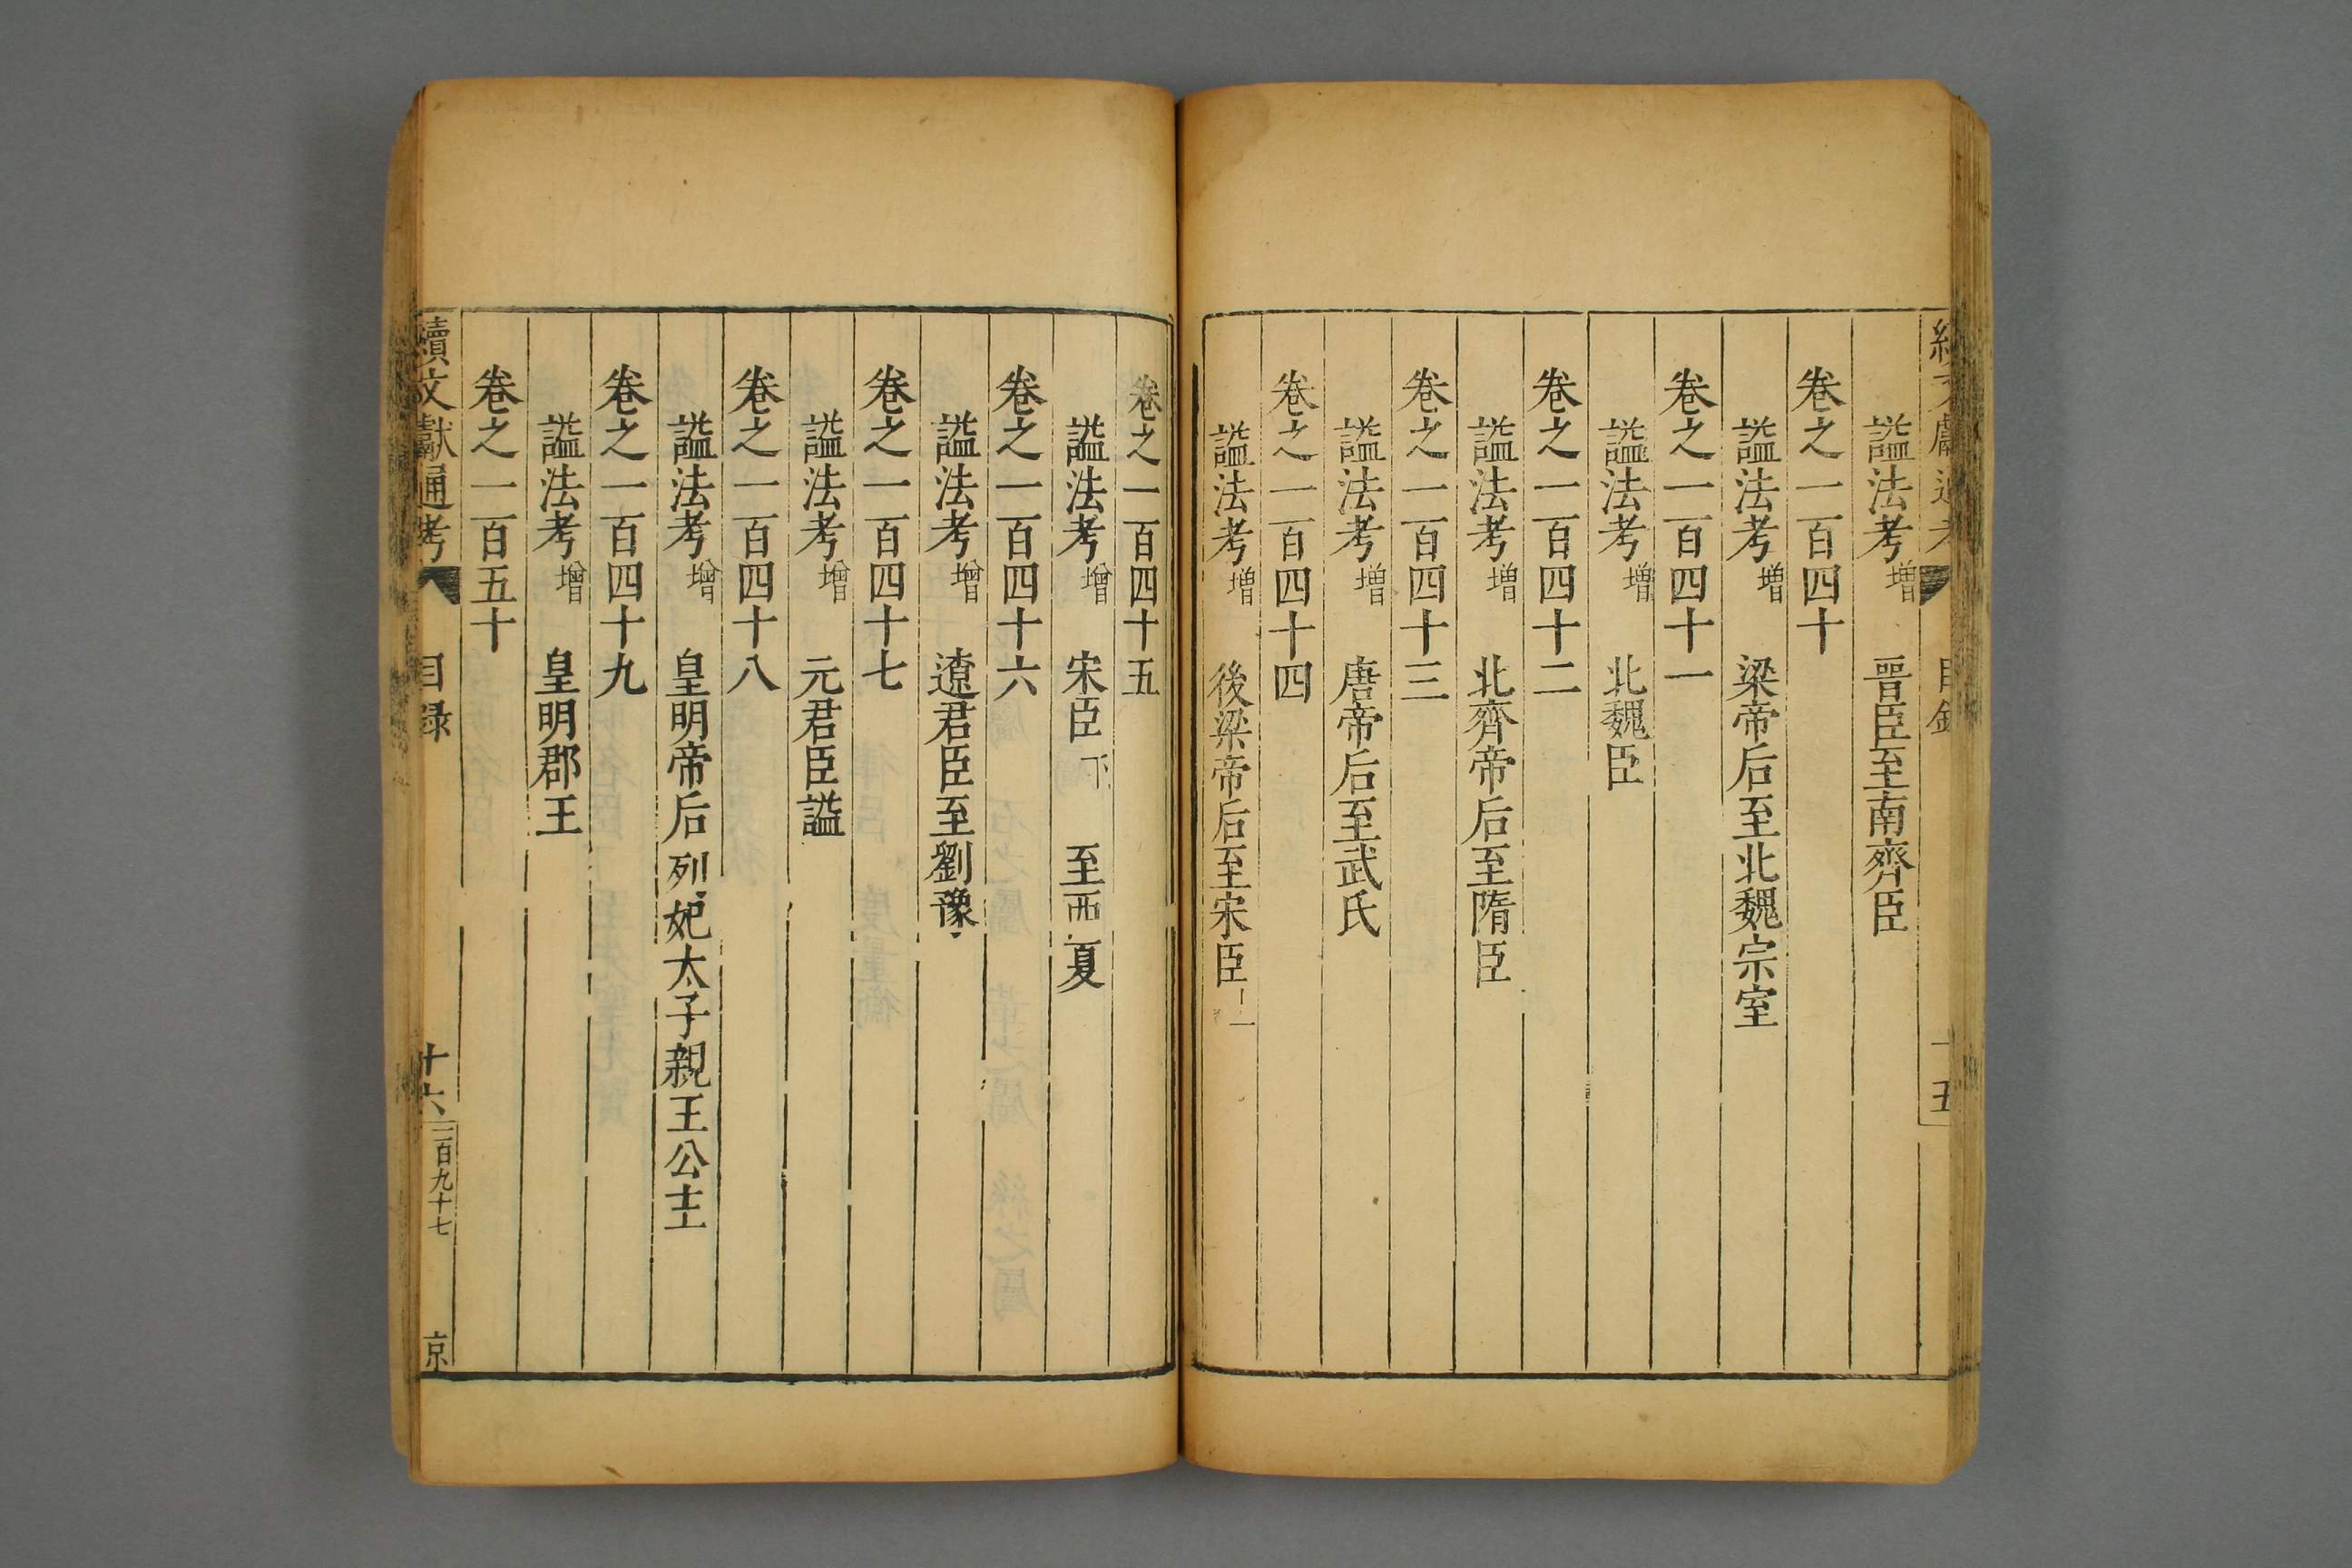 諡法考增 晉臣至南齊臣
卷之一百四十
諡法考增 梁帝后至北魏宗室
卷之一百四十一
諡法考增 北魏臣
卷之一百四十二
諡法考增 北齊帝后至隋臣
卷之一百四十三
諡法考增 唐帝后至武氏
卷之一百四十四
諡法考增 後梁帝后至宋臣
卷之一百四十五
諡法考增 宋臣下 至西夏
卷之一百四十六
諡法考增 遼君臣至劉豫
卷之一百四十七
諡法考增 元君臣諡
卷之一百四十八
諡法考增 皇明帝后列妃太子親王公主
卷之一百四十九
諡法考增 皇明郡王
卷之一百五十
續文獻通考 目錄 十六 三百九十七 京